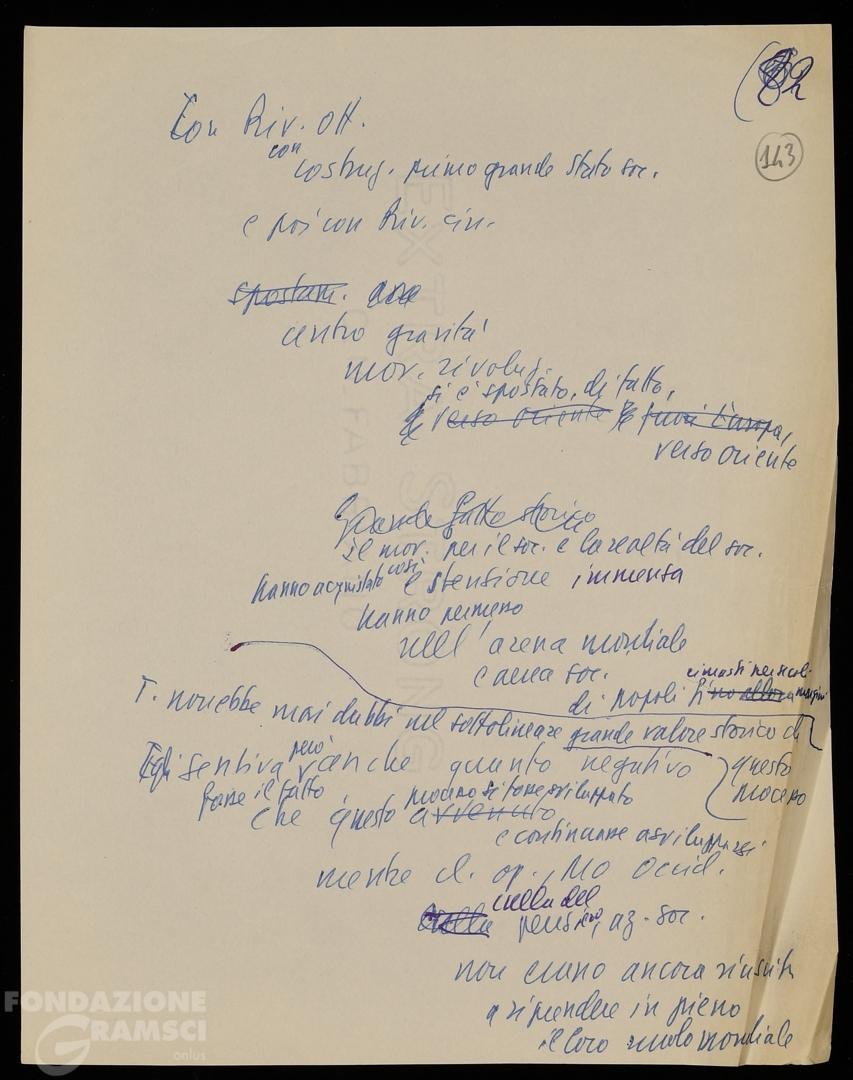 82
143
Con Riv. Ott.
con
costruz. primo grande stato soc.
e poi con Riv. cin.
spostam.
centro gravità
mov. rivoluz.
si è spostato, di fatto,
verso oriente fuori Europa,
verso oriente
Grande fatto storico
il mov. per il soc. e la realtà del soc.
hanno acquistato così estensione immensa
hanno permesso
nell'arena mondiale
e area soc.
rimasti per secoli
di popoli fino allora margini
T. non ebbe mai dubbi nel sottolineare grande valore storico di
questo
processo
Egli sentiva però anche quanto negativo
fosse il fatto
processo si fosse sviluppato
che questo avvenuto
e continuasse a svilupparsi
mentre cl. op., Mo Occid.
culla del
culla pensiero, az. soc.
non erano ancora riusciti
a riprendere in pieno
il loro ruolo mondiale
EXTRA STRONG
FABRIANO
FONDAZIONE
GRAMSCI
onlus